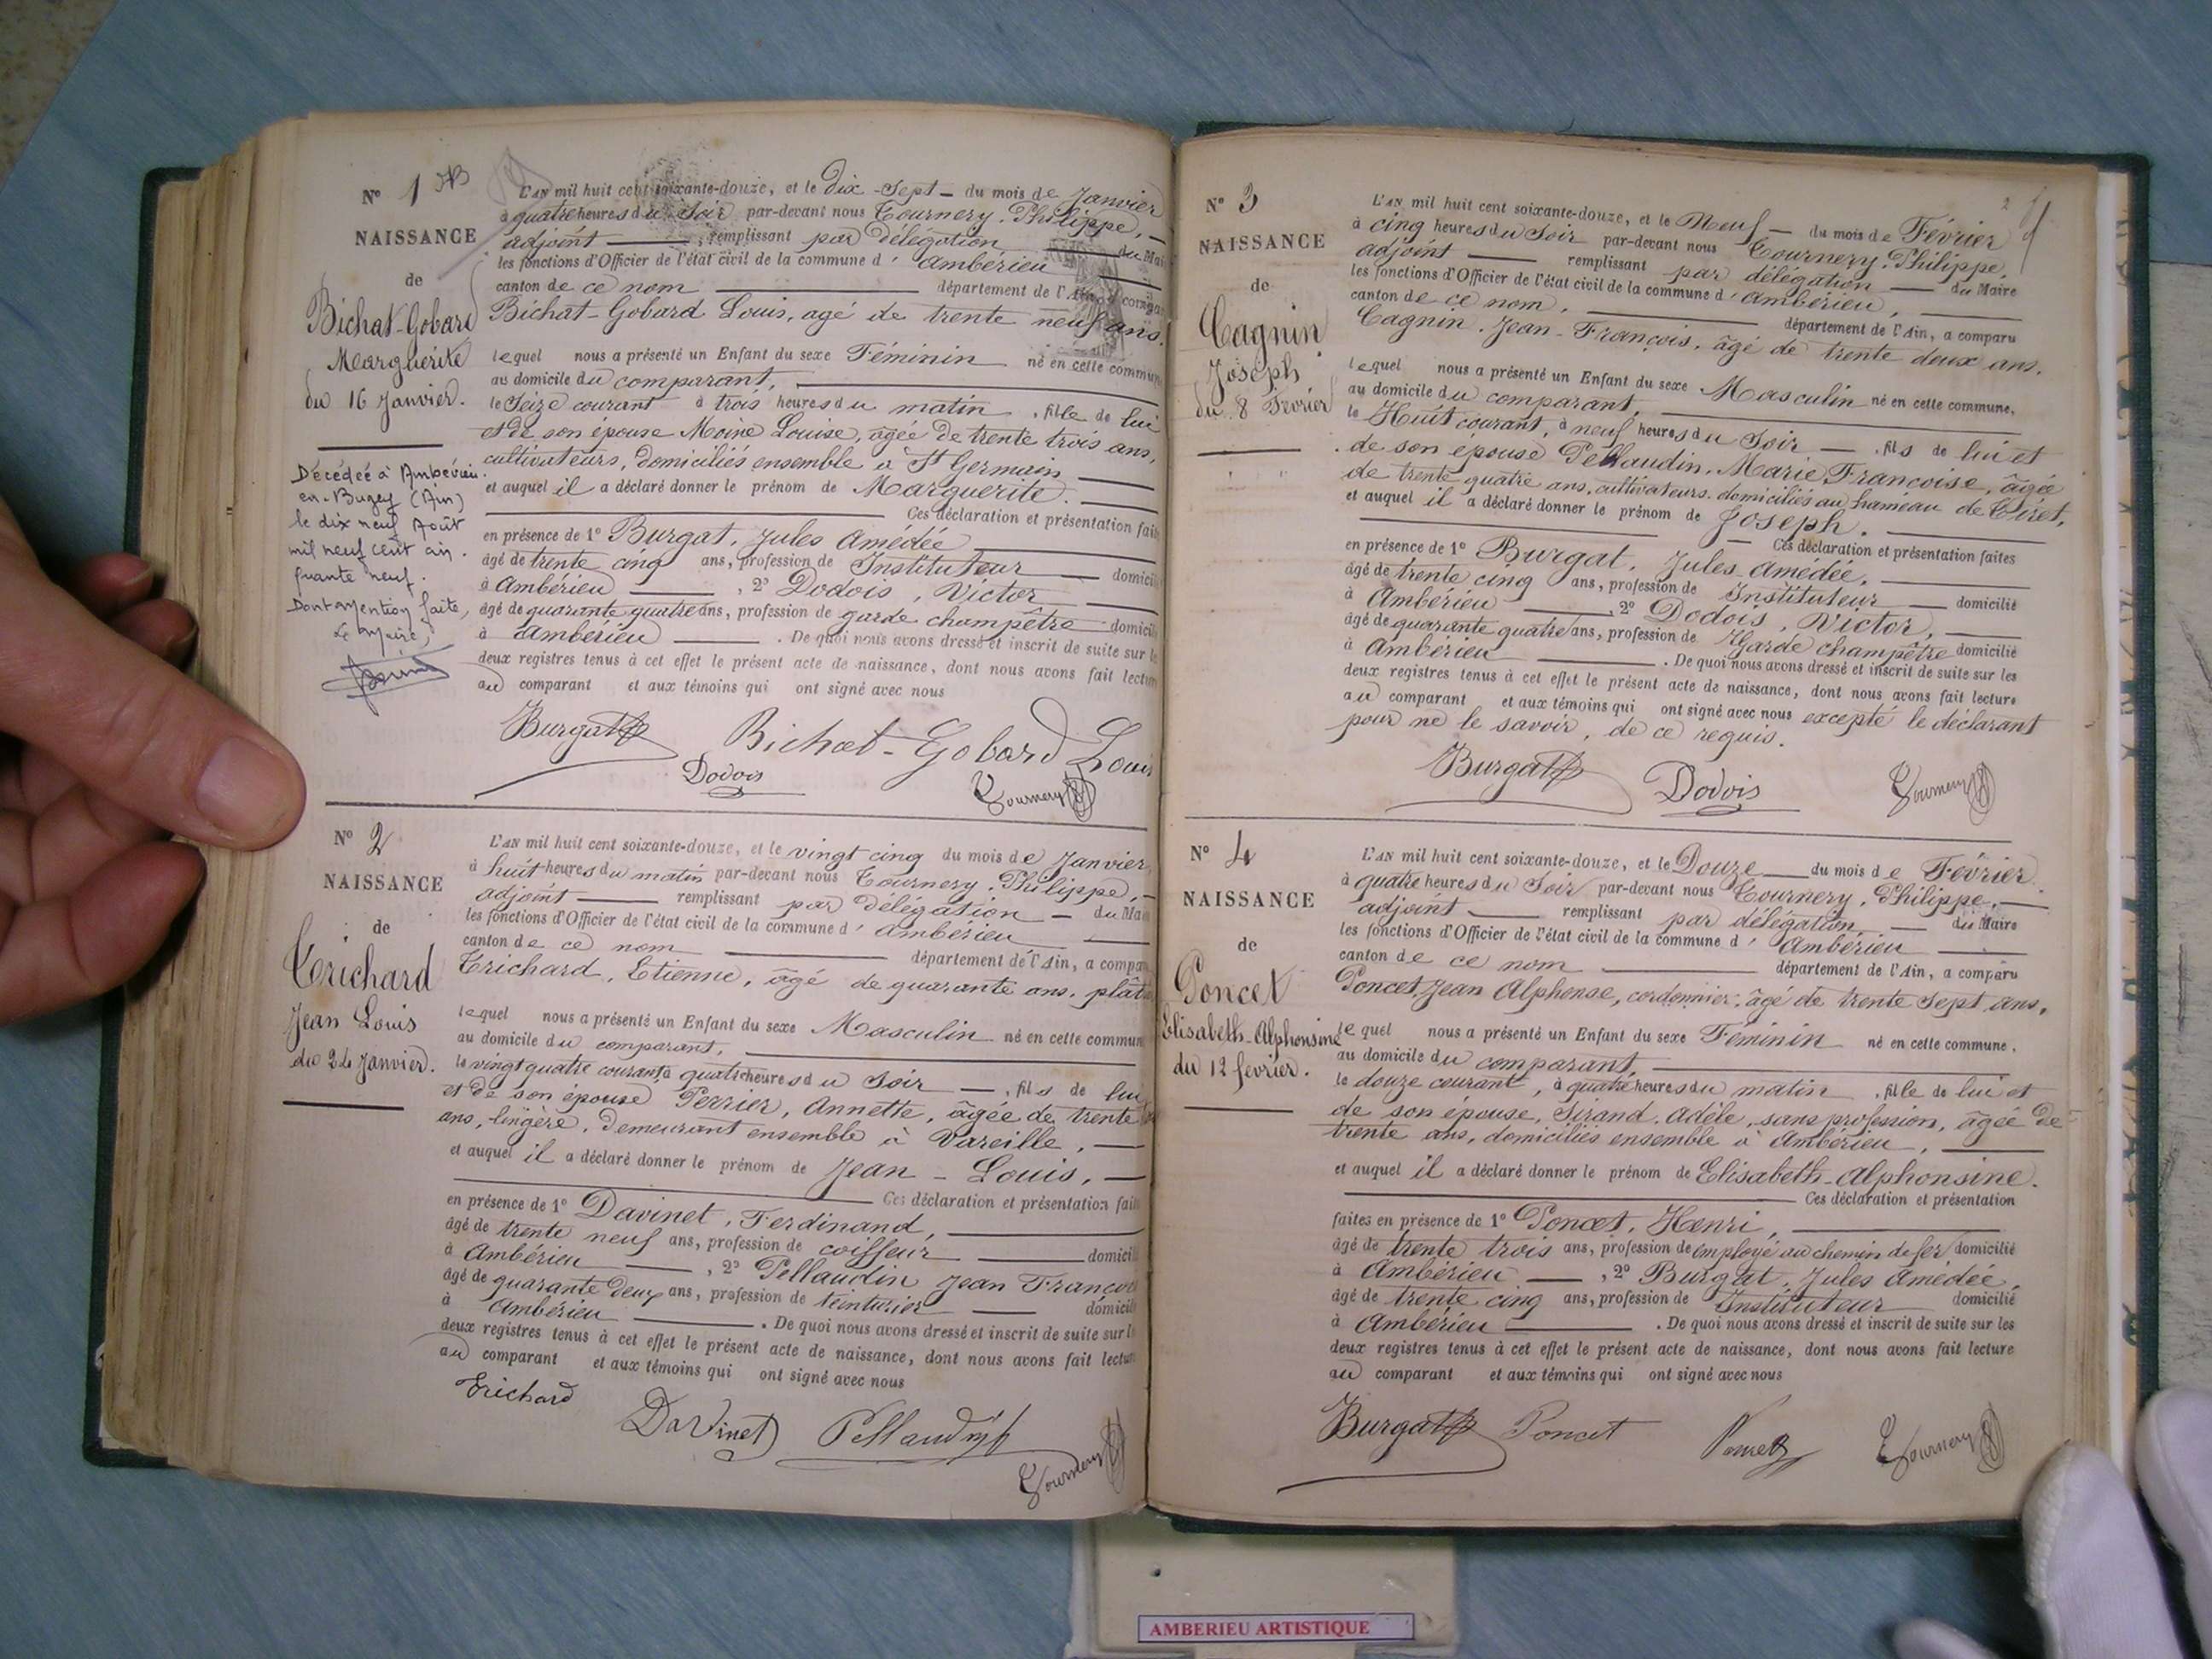 N° 1
NAISSANCE
de
Bichat-Gobard
Marguerite
du 16 Janvier.
Décédée à Ambérieu-
en-Bugey (Ain)
le dix neuf Août
mil neuf cent cin-
quante neuf.
Dont mention faite,
Le Maire,
L'AN mil huit cent soixante-douze, et le dix-sept du mois de Janvier
à quatre heures du soir par-devant nous Tournery, Philippe,
adjoint remplissant par délégation du Mai
les fonctions d'Officier de l'état civil de la commune d'Ambérieu
canton de ce nom département de l'Ain, a compa
Bichat-Gobard Louis, agé de trente neuf ans.
lequel nous a présenté un Enfant du sexe Féminin né en cette commune
au domicile du comparant,
le Seize courant à trois heures du matin, fille de lui
et de son épouse Moine Louise, âgée de trente trois ans,
cultivateurs, domiciliés ensemble à St Germain
et auquel il a déclaré donner le prénom de Marguerite.
Ces déclaration et présentation fait
en présence de 1° Burgat, Jules Amédée
âgé de trente cinq ans, profession de Instituteur domicili
à Ambérieu, 2° Dodois, Victor
âgé de quarante quatre ans, profession de garde champêtre domicili
à Ambérieu. De quoi nous avons dressé et inscrit de suite sur le
deux registres tenus à cet effet le présent acte de naissance, dont nous avons fait lectur
au comparant et aux témoins qui ont signé avec nous
Burgat Bichat-Gobard Louis
Dodois Tournery
N° 2
NAISSANCE
de
Trichard
Jean Louis
du 24 Janvier.
L'AN mil huit cent soixante-douze, et le vingt cinq du mois de Janvier
à huit heures du matin par-devant nous Tournery, Philippe,
adjoint remplissant par délégation du Mai
les fonctions d'Officier de l'état civil de la commune d'Ambérieu
canton de ce nom département de l'Ain, a compa
Trichard, Etienne, âgé de quarante ans, plât
lequel nous a présenté un Enfant du sexe Masculin né en cette commun
au domicile du comparant,
le vingt quatre courant à quatre heures du soir, fils de lui
et de son épouse Perrier, Annette, âgée de trente
ans, lingère, demeurant ensemble à Vareille,
et auquel il a déclaré donner le prénom de Jean-Louis,
Ces déclaration et présentation fait
en présence de 1° Davinet, Ferdinand,
âgé de trente neuf ans, profession de coiffeur domicili
à Ambérieu, 2° Pellaudin Jean Françoi
âgé de quarante deux ans, profession de teinturier domicili
à Ambérieu. De quoi nous avons dressé et inscrit de suite sur l
deux registres tenus à cet effet le présent acte de naissance, dont nous avons fait lectur
au comparant et aux témoins qui ont signé avec nous
Trichard
Davinet Pellaudin
Tournery
2
N° 3
NAISSANCE
de
Cagnin
Joseph
du 8 Février
L'AN mil huit cent soixante-douze, et le Neuf du mois de Février
à cinq heures du soir par-devant nous Tournery, Philippe,
adjoint remplissant par délégation du Maire
les fonctions d'Officier de l'état civil de la commune d'Ambérieu,
canton de ce nom, département de l'Ain, a comparu
Cagnin, Jean-François, âgé de trente deux ans,
lequel nous a présenté un Enfant du sexe Masculin né en cette commune,
au domicile du comparant,
le Huit courant, à neuf heures du soir, fils de lui et
de son épouse Pellaudin, Marie Françoise, âgée
de trente quatre ans, cultivateurs, domiciliés au hameau de Tiret,
et auquel il a déclaré donner le prénom de Joseph.
Ces déclaration et présentation faites
en présence de 1° Burgat, Jules-Amédée,
âgé de trente cinq ans, profession de Instituteur domicilié
à Ambérieu, 2° Dodois, Victor,
âgé de quarante quatre ans, profession de Garde champêtre domicilié
à Ambérieu. De quoi nous avons dressé et inscrit de suite sur les
deux registres tenus à cet effet le présent acte de naissance, dont nous avons fait lecture
au comparant et aux témoins qui ont signé avec nous excepté le déclarant
pour ne le savoir, de ce requis.
Burgat Dodois Tournery
N° 4
NAISSANCE
de
Poncet
Elisabeth-Alphonsine
du 12 février.
L'AN mil huit cent soixante-douze, et le Douze du mois de Février
à quatre heures du soir par-devant nous Tournery, Philippe,
adjoint remplissant par délégation du Maire
les fonctions d'Officier de l'état civil de la commune d'Ambérieu
canton de ce nom département de l'Ain, a comparu
Poncet, Jean Alphonse, cordonnier, âgé de trente sept ans,
lequel nous a présenté un Enfant du sexe Féminin né en cette commune,
au domicile du comparant,
le douze courant, à quatre heures du matin, fille de lui et
de son épouse, Sirand, Adèle, sans profession, âgée de
trente ans, domiciliés ensemble à Ambérieu,
et auquel il a déclaré donner le prénom de Elisabeth-Alphonsine.
Ces déclaration et présentation
faites en présence de 1° Poncet, Henri,
âgé de trente trois ans, profession de employé au chemin de fer domicilié
à Ambérieu, 2° Burgat, Jules Amédée,
âgé de trente cinq ans, profession de Instituteur domicilié
à Ambérieu. De quoi nous avons dressé et inscrit de suite sur les
deux registres tenus à cet effet le présent acte de naissance, dont nous avons fait lecture
au comparant et aux témoins qui ont signé avec nous
Burgat Poncet Poncet Tournery
AMBERIEU ARTISTIQUE